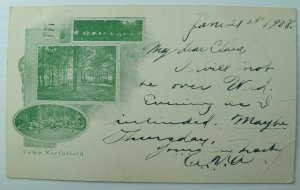 Jan. 21st 1908.
My dear Clara
I will not
be over Wed.
Evening as I
intended. Maybe
Thursday,
Yours in haste
Camp Northfield